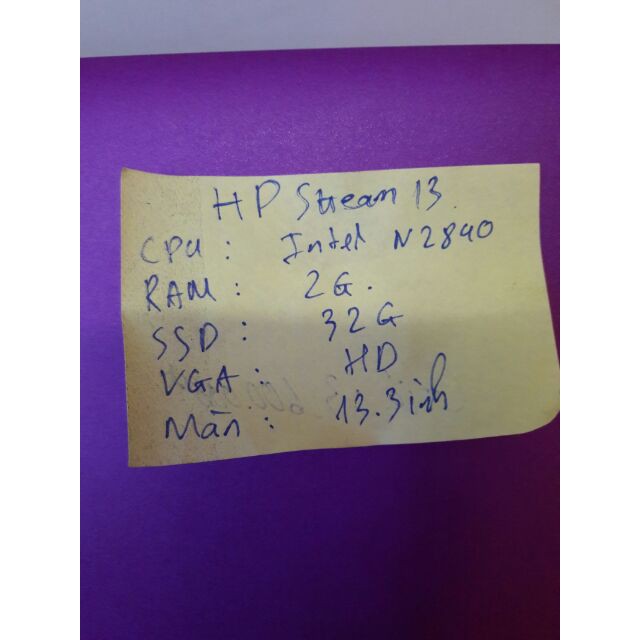 HP Stream 13
CPU : Intel N2840
RAM : 2G.
SSD : 32G
VGA : HD
Màn : 13.3inh